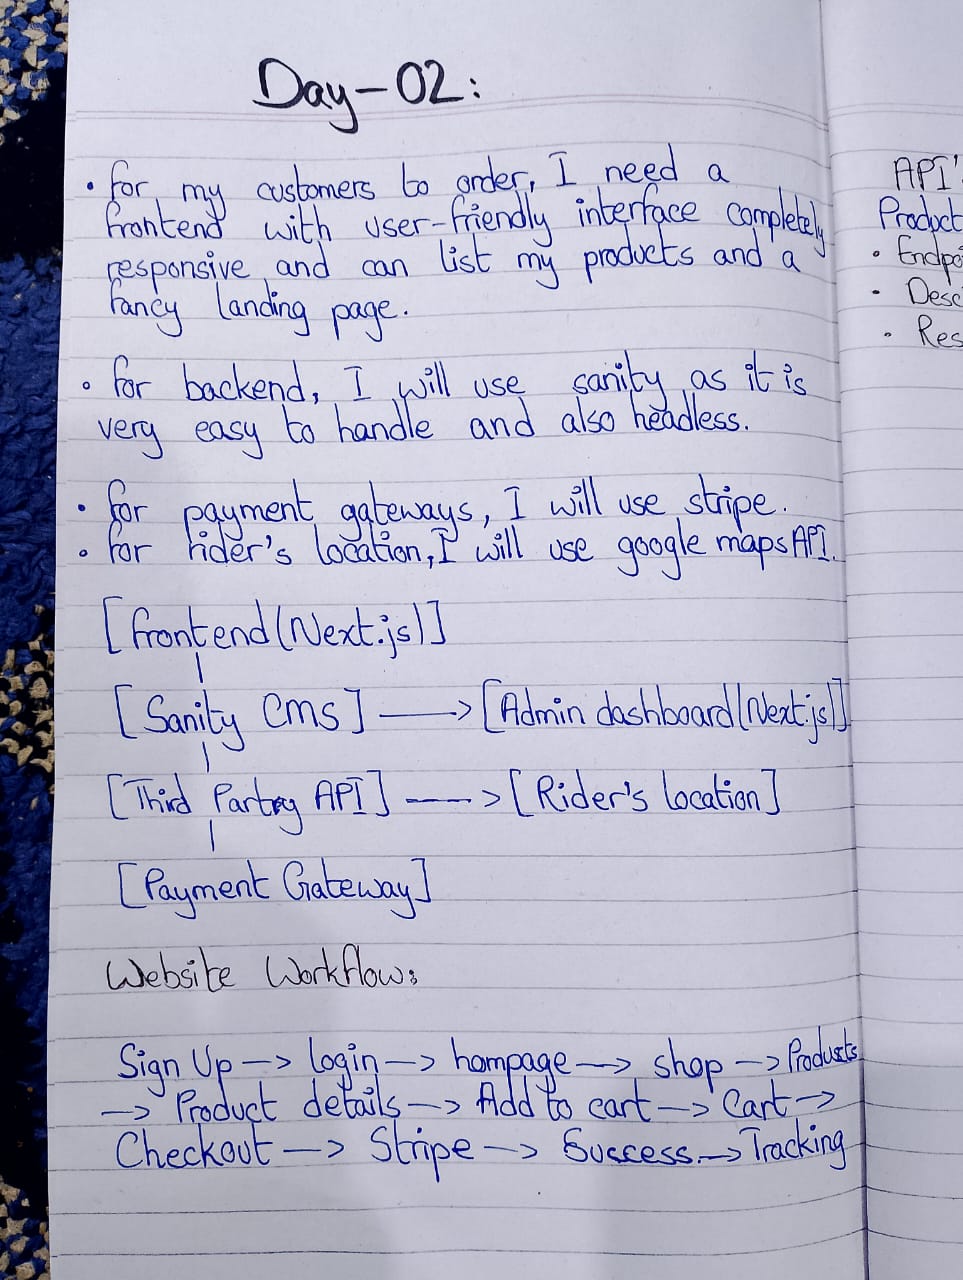 Day-02:
• for my customers to order, I need a
frontend with user-friendly interface completely
responsive and can list my products and a
fancy landing page.
• for backend, I will use sanity as it is
very easy to handle and also headless.
• for payment gateways, I will use stripe.
• for rider's location, I will use google maps API.
[frontend (Next.js)]
|
[Sanity CMS] ---> [Admin dashboard (Next.js)]
|
[Third Partry API] ---> [Rider's location]
|
[Payment Gateway]
Website Workflow:
Sign Up --> login --> hompage --> shop --> Products
--> Product details --> Add to cart --> Cart -->
Checkout --> Stripe --> Success --> Tracking
API'
Product
• Endpo
• Desc
• Res